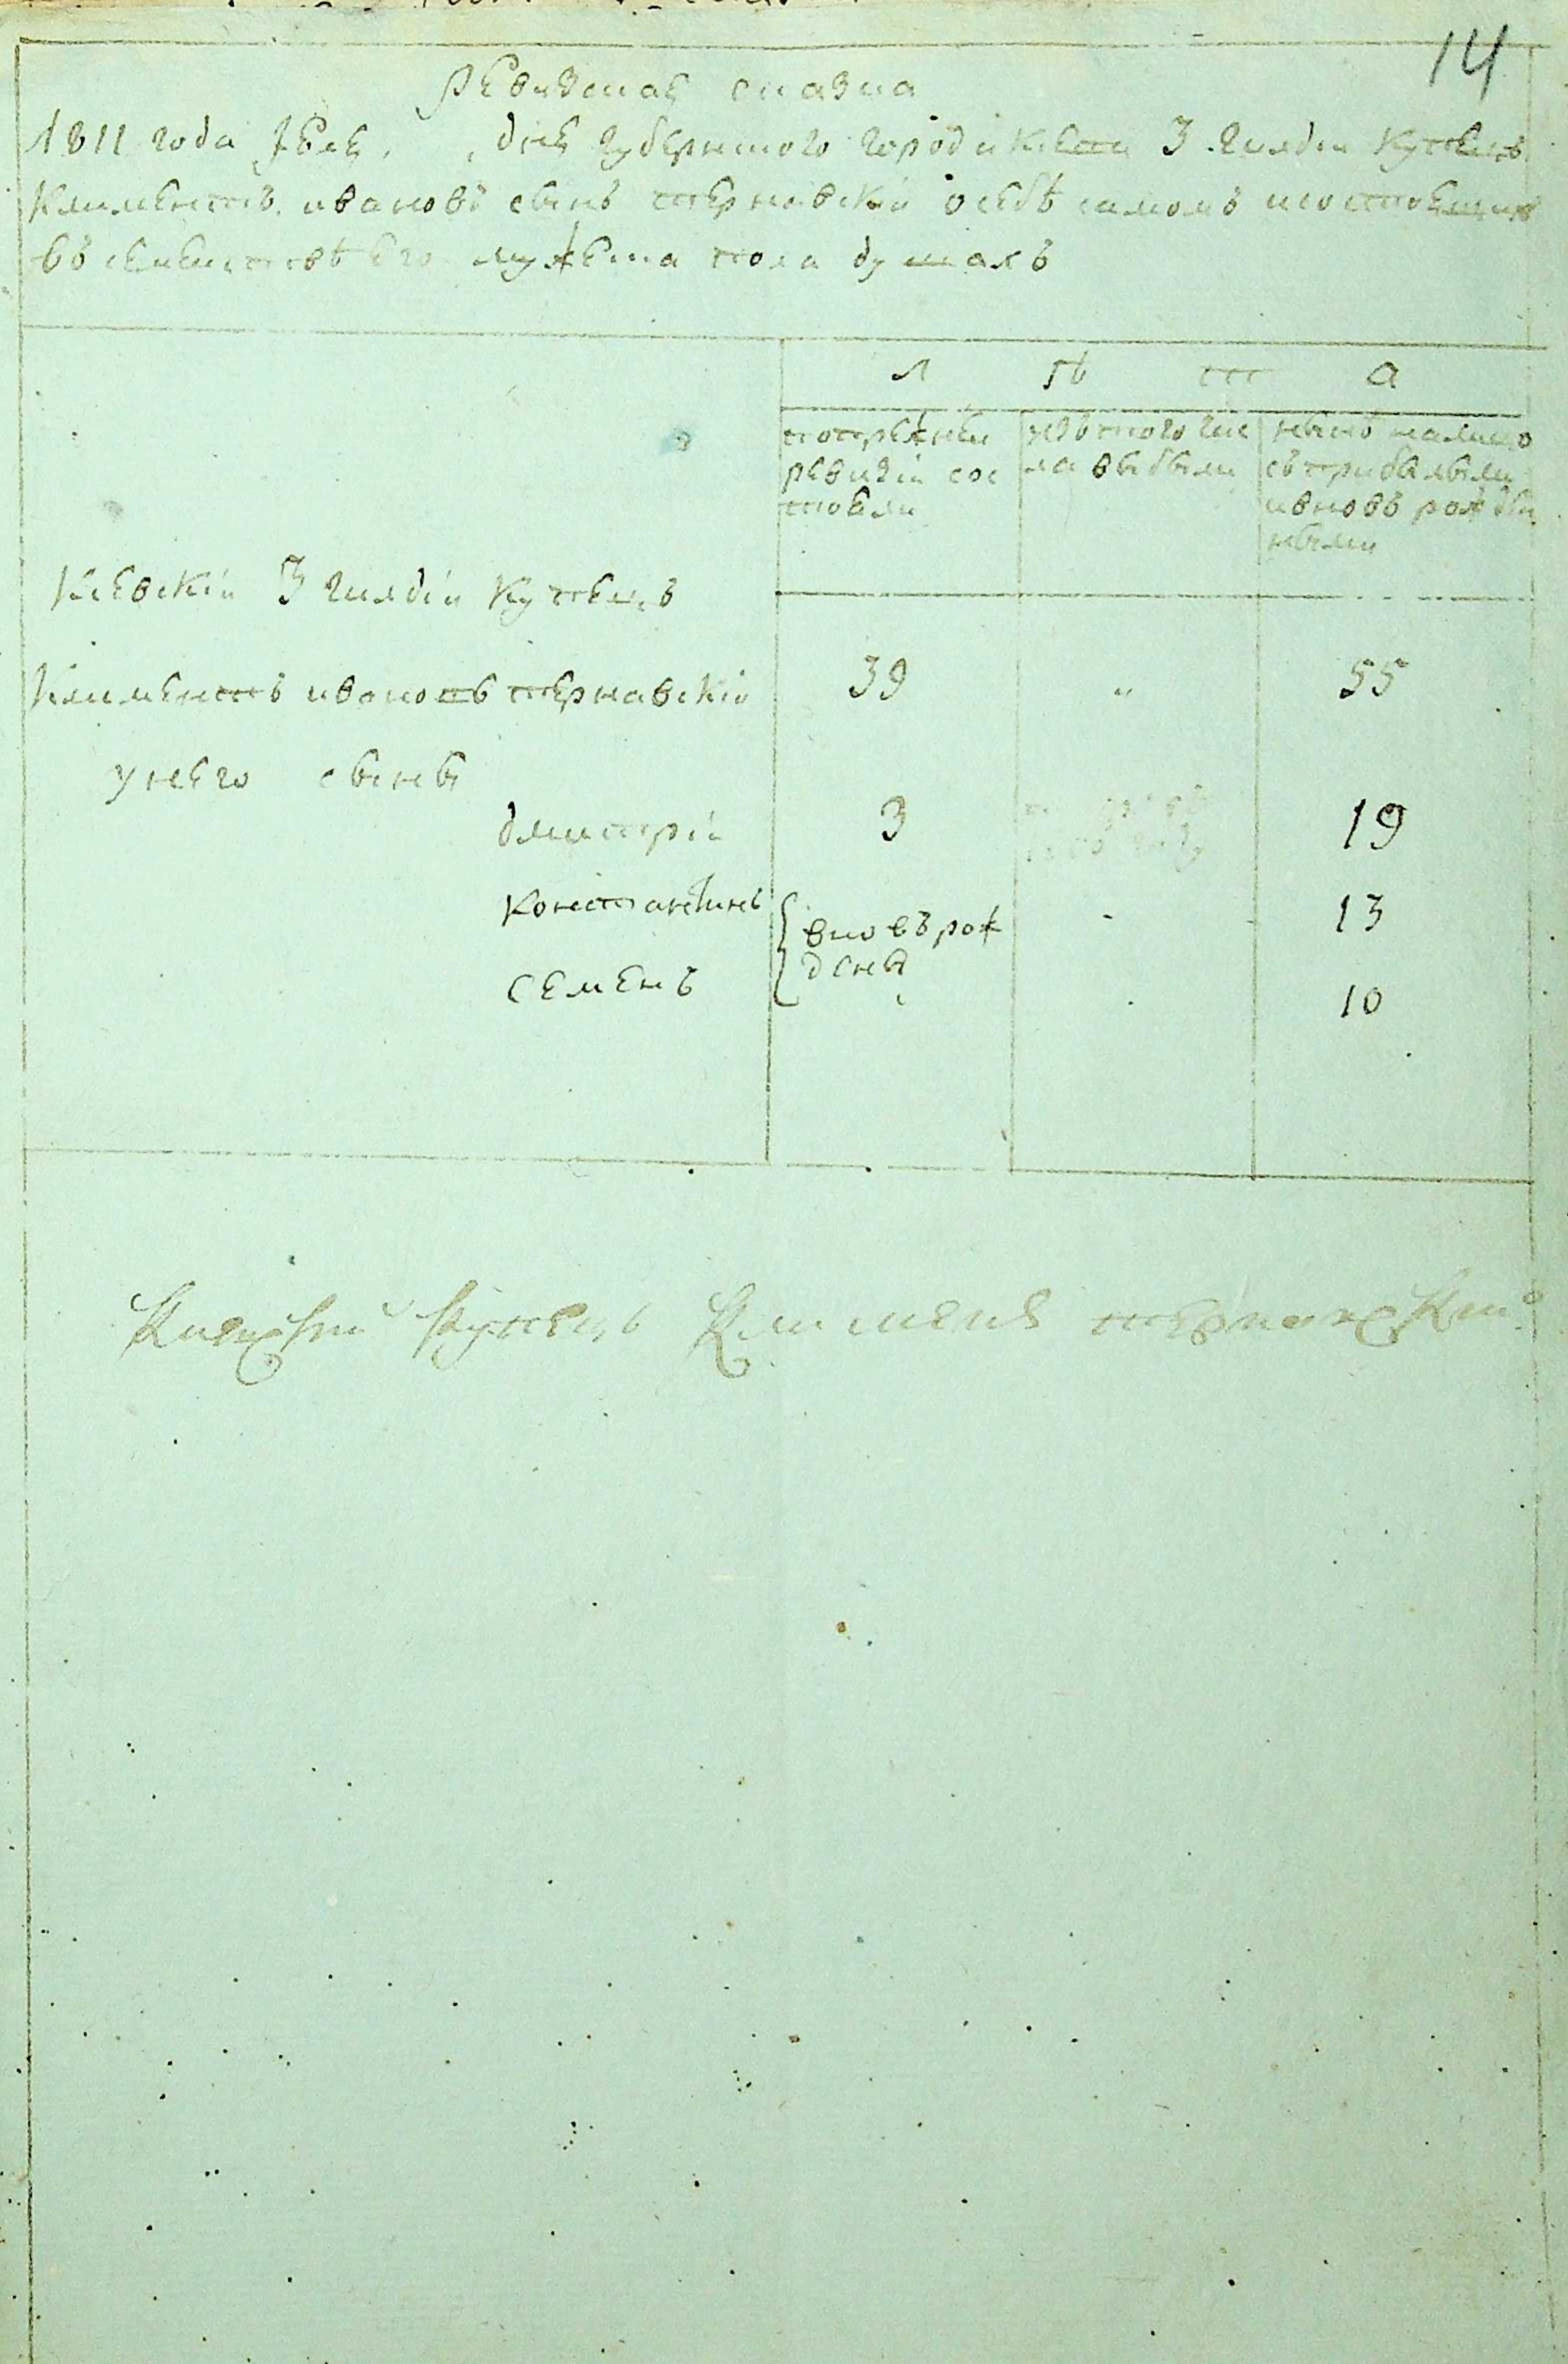 14
Ревизская сказка
1811 года дня губернского города Киева 3 гилдіи купецъ
Климентъ ивановъ сынъ тернавскій осебѣ самомъ исостоящихъ
въ семействѣ его мужеска пола душахъ
л ѣ т а
попрежней ревизіи состояли
изътого числа выбыли
нынѣ налицо съ прибылыми ивновь рожденными
Кіевскій 3 гилдіи купецъ
Климентъ ивановъ тернавскій 39 " 55
унего сыны
дмитрій 3 19
Константинъ вновь рождены - 13
Семенъ 10
Киевский купецъ Климент тернавский